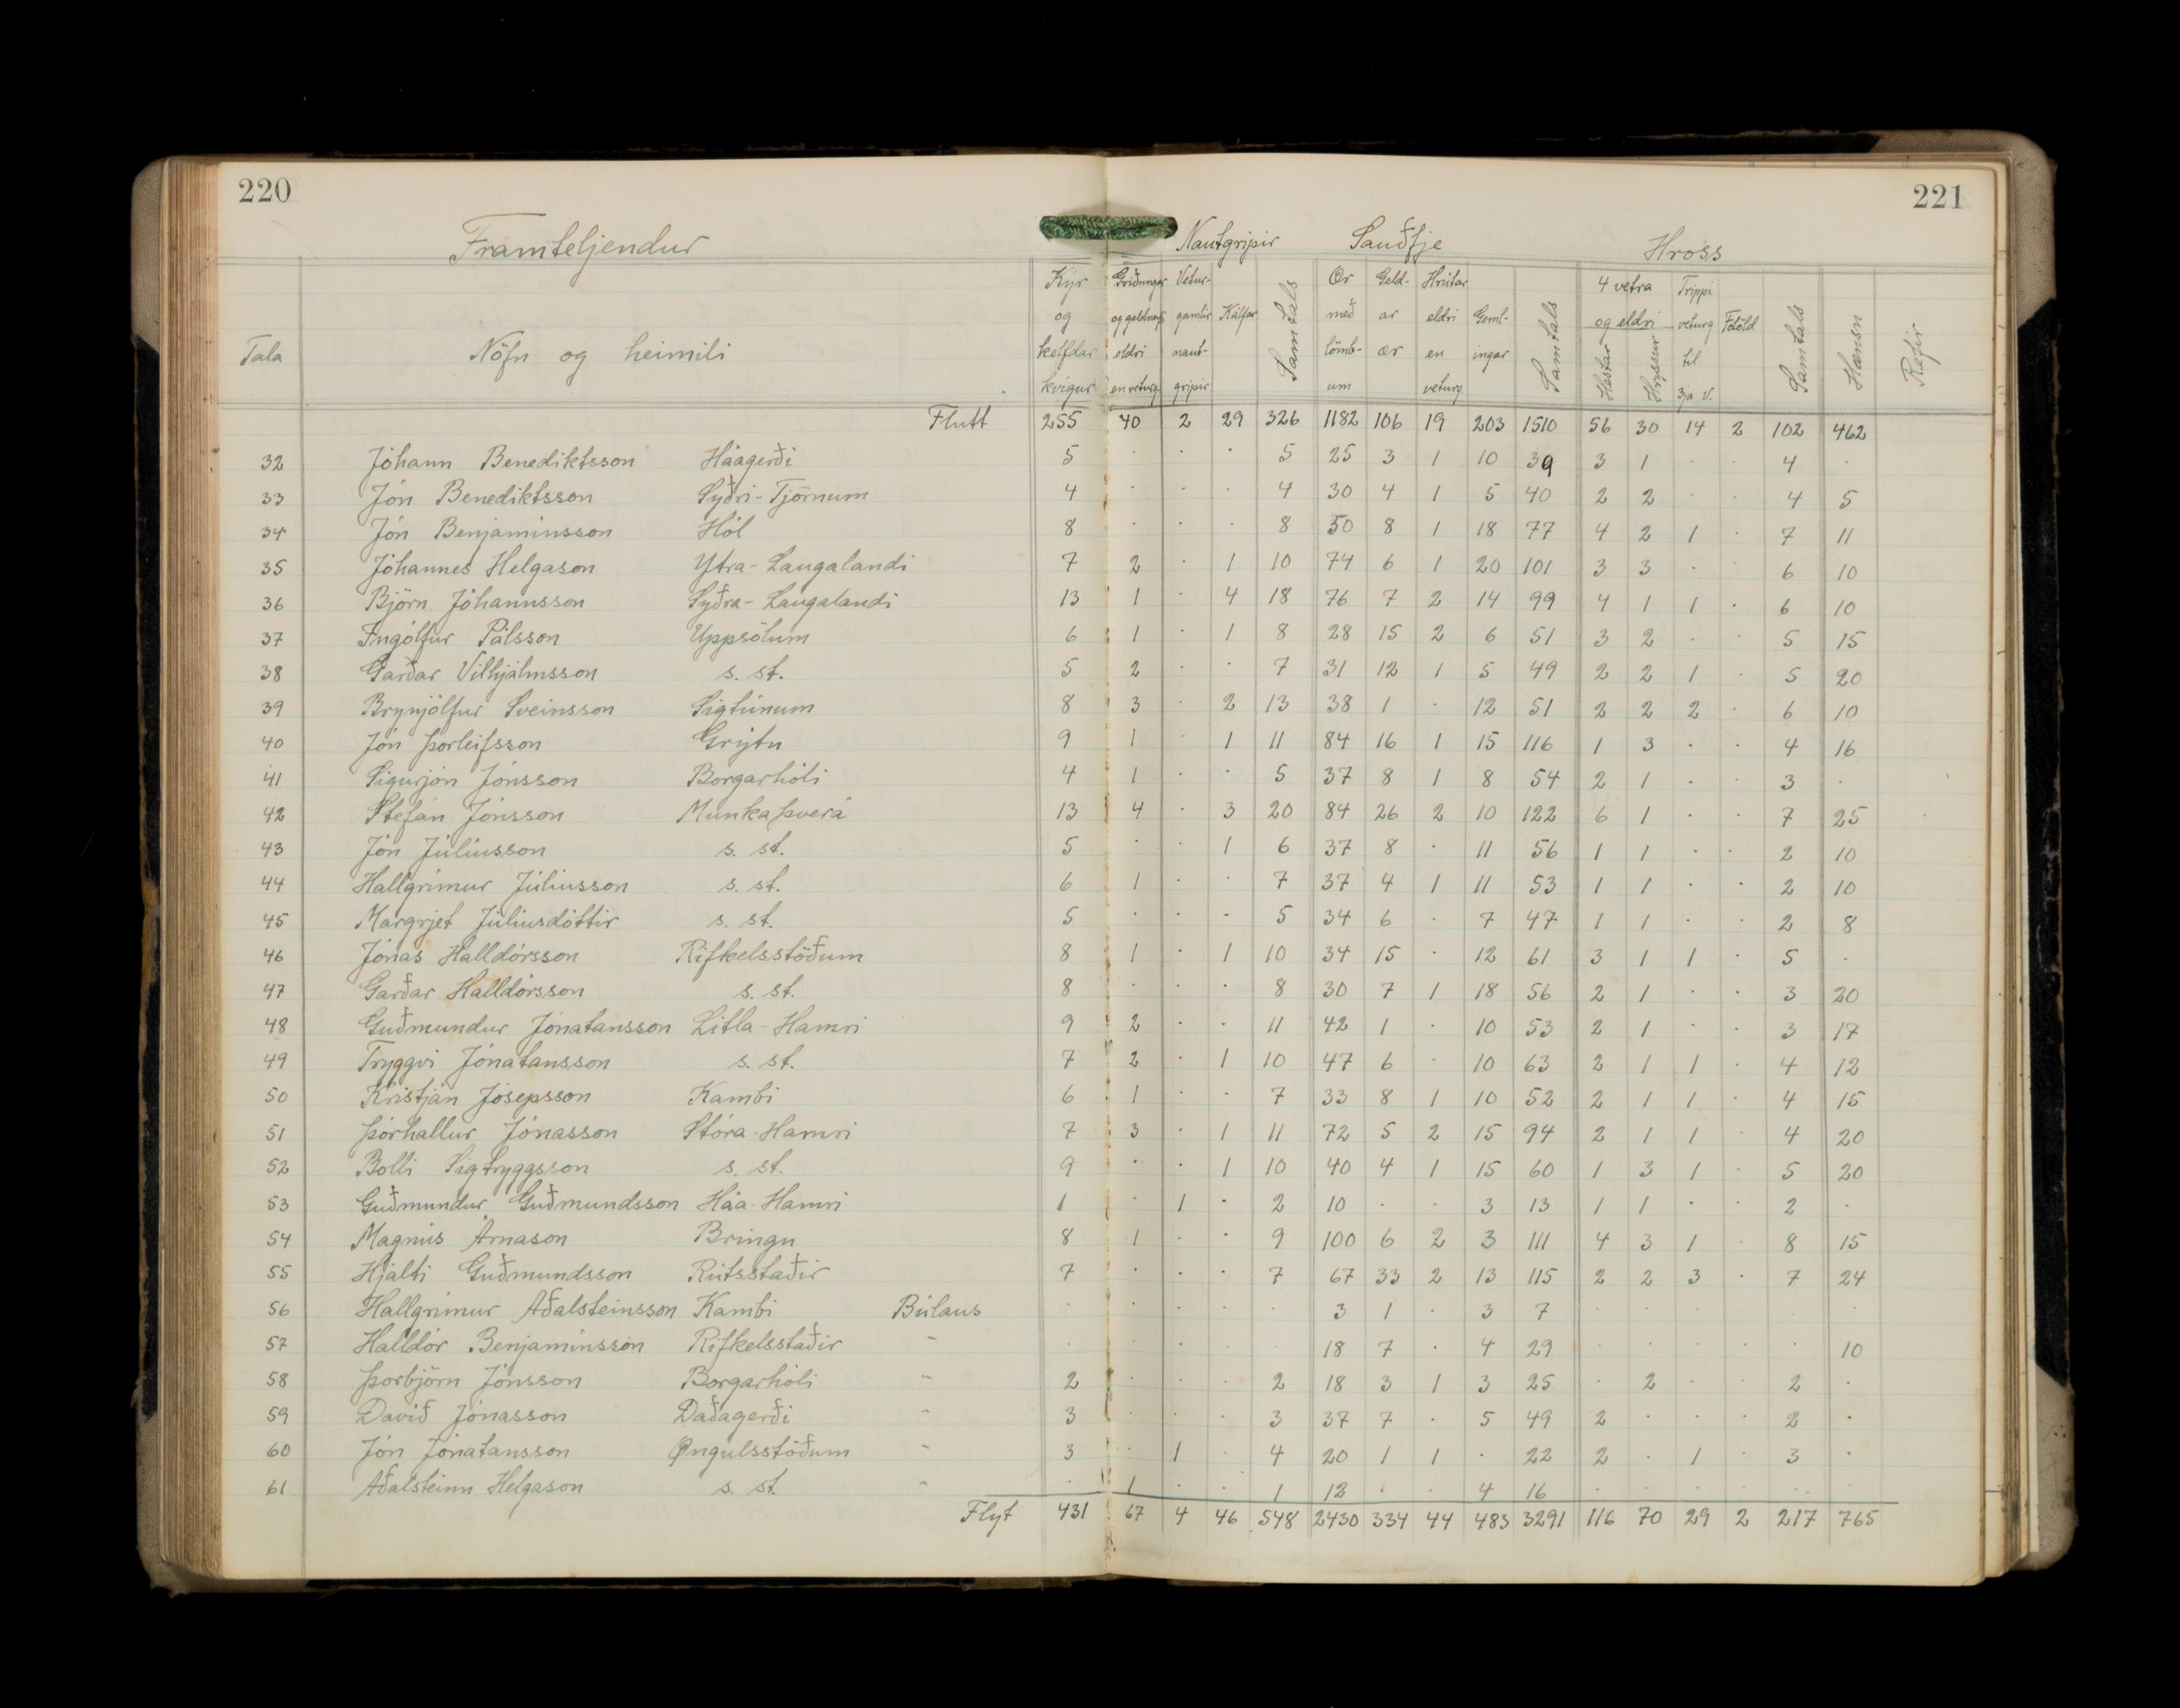 220
221
Framteljendur
Nautgripir Sauðfje Hross
Tala Nöfn og heimili Kýr og kelfdar kvígur Griðungar og geldneyti eldri en veturg. Vetur-gamlir naut-gripir Kálfar Samtals Ær með lömb-um Geld-ar ær Hrútar eldri en veturg. Geml-ingar Samtals 4 vetra og eldri Hestar Hryssur Trippi veturg til 3ja v. Fööld Samtals Hænsn Refir
Flutt 255 40 2 29 326 1182 106 19 203 1510 56 30 14 2 102 462
32 Jóhann Benediktsson Háagerði 5 . . . 5 25 3 1 10 39 3 1 . . 4 .
33 Jón Benediktsson Syðri-Tjörnum 4 . . . 4 30 4 1 5 40 2 2 . . 4 5
34 Jón Benjamínsson Hól 8 . . . 8 50 8 1 18 77 4 2 1 . 7 11
35 Jóhannes Helgason Ytra-Laugalandi 7 2 . 1 10 74 6 1 20 101 3 3 . . 6 10
36 Björn Jóhannsson Syðra-Laugalandi 13 1 . 4 18 76 7 2 14 99 4 1 1 . 6 10
37 Ingólfur Pálsson Uppsölum 6 1 . 1 8 28 15 2 6 51 3 2 . . 5 15
38 Garðar Vilhjálmsson s. st. 5 2 . . 7 31 12 1 5 49 2 2 1 . 5 20
39 Brynjólfur Sveinsson Sigtúnum 8 3 . 2 13 38 1 . 12 51 2 2 2 . 6 10
40 Jón Þorleifsson Grýtu 9 1 . 1 11 84 16 1 15 116 1 3 . . 4 16
41 Sigurjón Jónsson Borgarhóli 4 1 . . 5 37 8 1 8 54 2 1 . . 3 .
42 Stefán Jónsson Munkaþverá 13 4 . 3 20 84 26 2 10 122 6 1 . . 7 25
43 Jón Júlíusson s. st. 5 . . 1 6 37 8 . 11 56 1 1 . . 2 10
44 Hallgrímur Júlíusson s. st. 6 1 . . 7 37 4 1 11 53 1 1 . . 2 10
45 Margrjet Júlíusdóttir s. st. 5 . . . 5 34 6 . 7 47 1 1 . . 2 8
46 Jónas Halldórsson Rifkelsstöðum 8 1 . 1 10 34 15 . 12 61 3 1 1 . 5 .
47 Garðar Halldórsson s. st. 8 . . . 8 30 7 1 18 56 2 1 . . 3 20
48 Guðmundur Jónatansson Litla-Hamri 9 2 . . 11 42 1 . 10 53 2 1 . . 3 17
49 Tryggvi Jónatansson s. st. 7 2 . 1 10 47 6 . 10 63 2 1 1 . 4 12
50 Kristján Jósepsson Kambi 6 1 . . 7 33 8 1 10 52 2 1 1 . 4 15
51 Þórhallur Jónasson Stóra-Hamri 7 3 . 1 11 72 5 2 15 94 2 1 1 . 4 20
52 Bolli Sigtryggsson s. st. 9 . . 1 10 40 4 1 15 60 1 3 1 . 5 20
53 Guðmundur Guðmundsson Háa-Hamri 1 . 1 . 2 10 . . 3 13 1 1 . . 2 .
54 Magnús Árnason Bringu 8 1 . . 9 100 6 2 3 111 4 3 1 . 8 15
55 Hjalti Guðmundsson Rútsstaðir 7 . . . 7 67 33 2 13 115 2 2 3 . 7 24
56 Hallgrímur Aðalsteinsson Kambi Búlaus . . . . . 3 1 . 3 7 . . . . . .
57 Halldór Benjamínsson Rifkelsstaðir - . . . . . 18 7 . 4 29 . . . . . 10
58 Þorbjörn Jónsson Borgarhóli - 2 . . . 2 18 3 1 3 25 . 2 . . 2 .
59 Davíð Jónasson Daðagerði - 3 . . . 3 37 7 . 5 49 2 . . . 2 .
60 Jón Jónatansson Öngulsstöðum - 3 . 1 . 4 20 1 1 . 22 2 . 1 . 3 .
61 Aðalsteinn Helgason s. st. - . 1 . . 1 12 . . 4 16 . . . . . .
Flyt 431 67 4 46 548 2430 334 44 483 3291 116 70 29 2 217 765